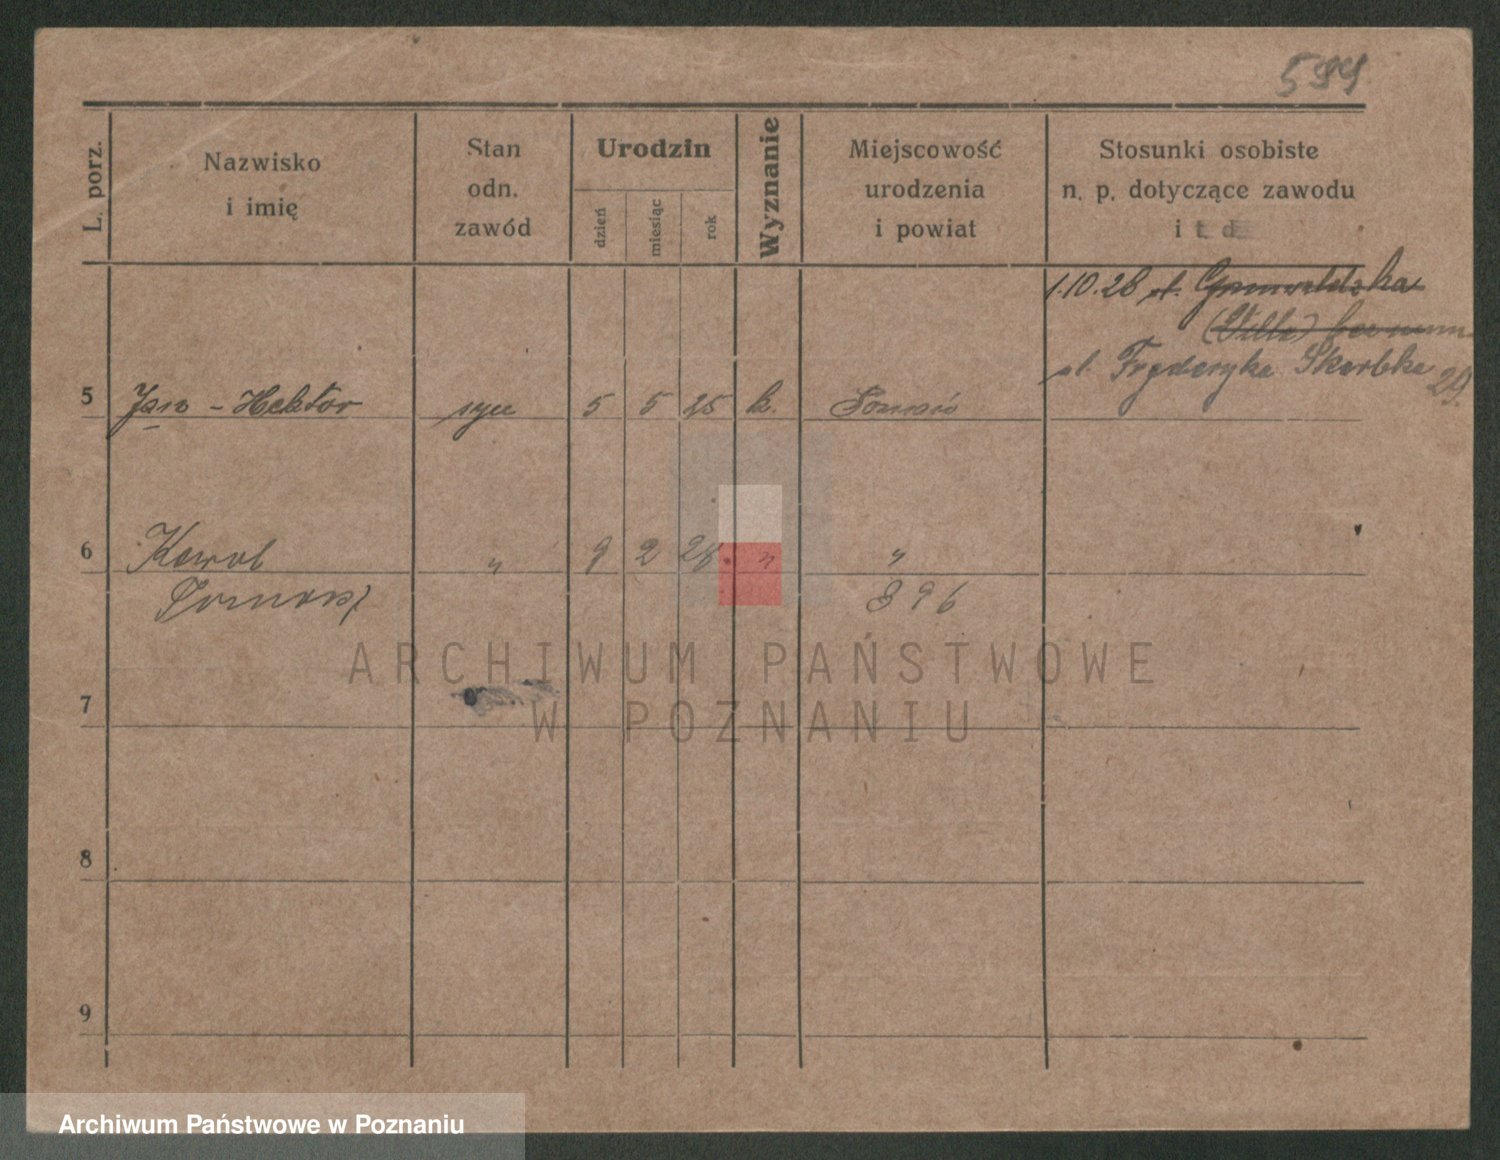 594
L. porz.
Nazwisko
i imię
Stan
odn.
zawód
Urodzin
dzień
miesiąc
rok
Wyznanie
Miejscowość
urodzenia
i powiat
Stosunki osobiste
n. p. dotyczące zawodu
i t. d.
1.10.28 ul. Grunwaldzka
(Willa)
ul. Fryderyka Skarbka
29.
5 Jan - Hektor syn 5 5 25 k. Poznań
6 Karol " 9 2 28 " "
396
7
8
9
ARCHIWUM PAŃSTWOWE
W POZNANIU
Archiwum Państwowe w Poznaniu